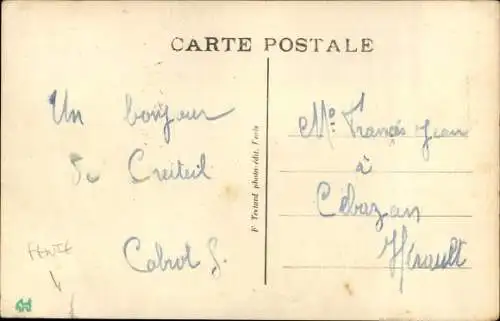 CARTE POSTALE
Un bonjour
de Creiteil
Cabrol S.
F Testard photo-édit. Paris
Mr. Françis Jean
à
Cébazan
Hérault
FENTE